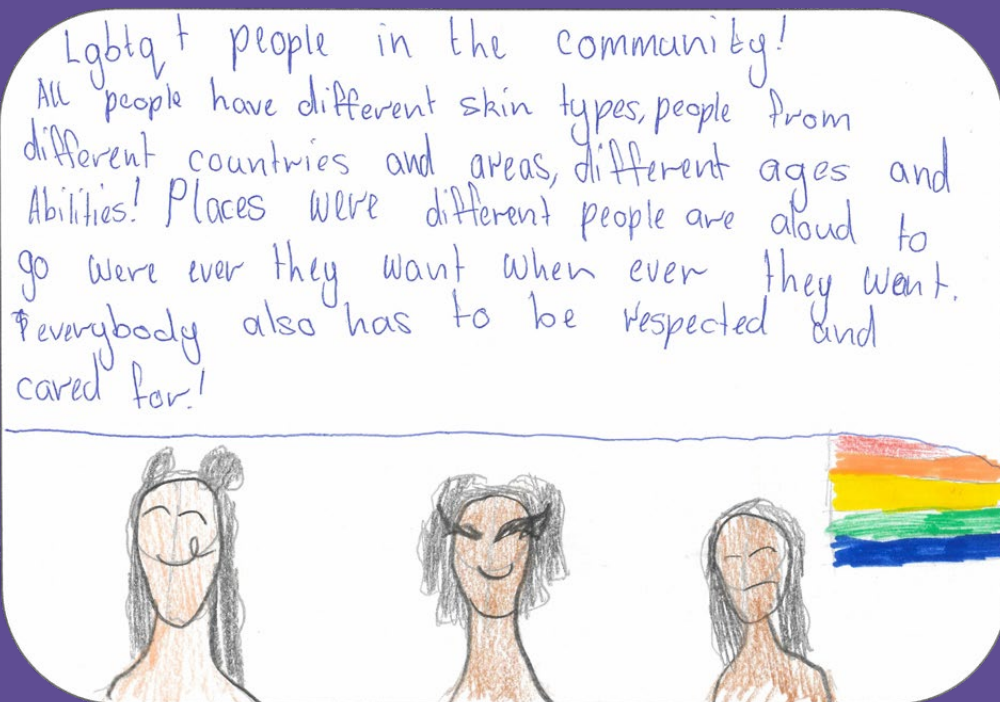 Lgbtq + people in the community!
All people have different skin types, people from
different countries and areas, different ages and
Abilities! Places were different people are aloud to
go were ever they want when ever they want.
everybody also has to be respected and
cared for!